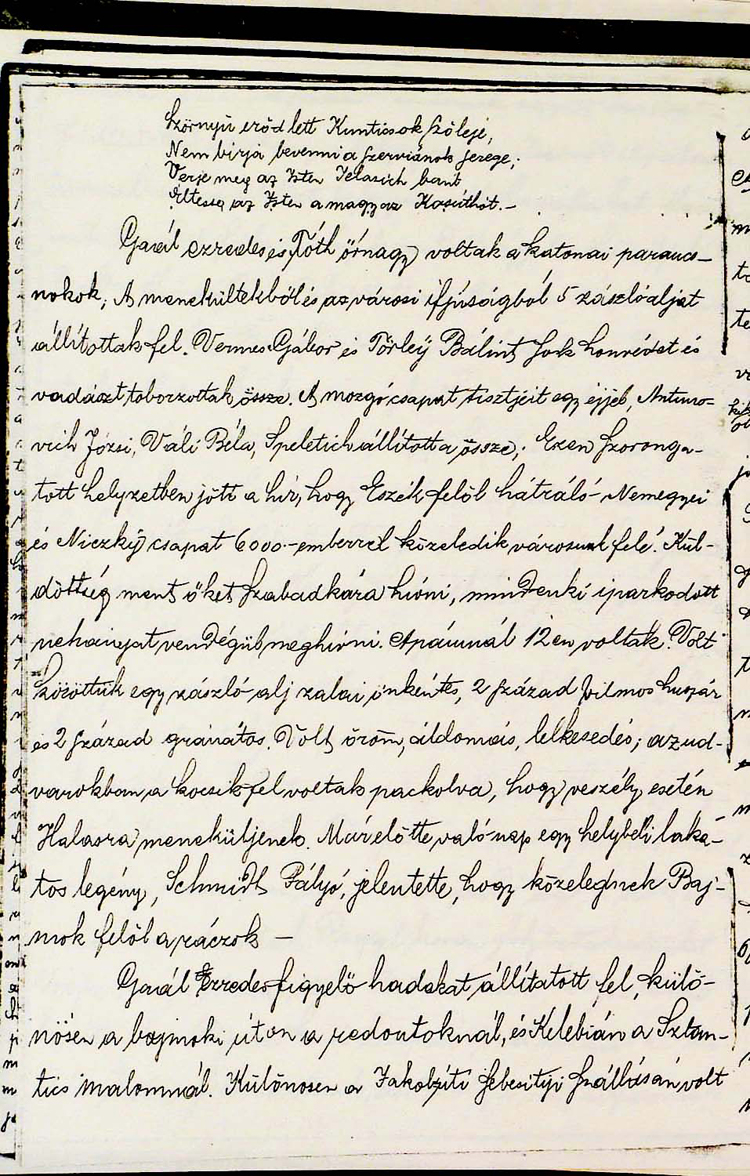 Szörnyű erőd lett Kunticsok szőleje,
Nem birja bevenni a szerviánok serege;
Verje meg az Isten Jelasich bánt
Éltesse az Isten a magyar Kosúthot.-
Gaál ezredes és Tóth őrnagy voltak a katonai parancs-
nokok; A menekültekből és az városi ifjúságból 5 zászlóaljat
állítottak fel. Vermes Gábor és Törley Bálint sok honvédet és
vadászt toborzottak össze. A mozgó csapat tisztjeit egy éjjel, Antuno-
vich Józsi, Váli Béla, Speletich állította össze; Ezen szoronga-
tott helyzetben jött a hír, hogy Eszék felől hátráló Nemegyei
és Niczky csapat 6000-emberrel közeledik városunk felé. Kül-
döttség ment őket Szabadkára hívni, mindenki iparkodott
nehányat vendégül meghívni. Apámnál 12en voltak. Volt
közöttük egy zászló alj zalai önkéntes, 2 század Vilmos huszár
és 2 század gránátos. Volt öröm, áldomás, lelkesedés; az ud-
varokban a kocsik fel voltak packolva, hogy veszély esetén
Halasra meneküljenek. Már előtte való nap egy helybeli laka-
tos legény, Schmidt Pályó, jelentette, hogy közelegnek Baj-
mok felöl a ráczok —
Gaál Ezredes figyelő hadakat állítatott fel, külö-
nösen a bajmoki úton a redoutoknál, és Kelebián a Sztan-
tics malomnál. Különosen a Jakobsiti szállásán volt